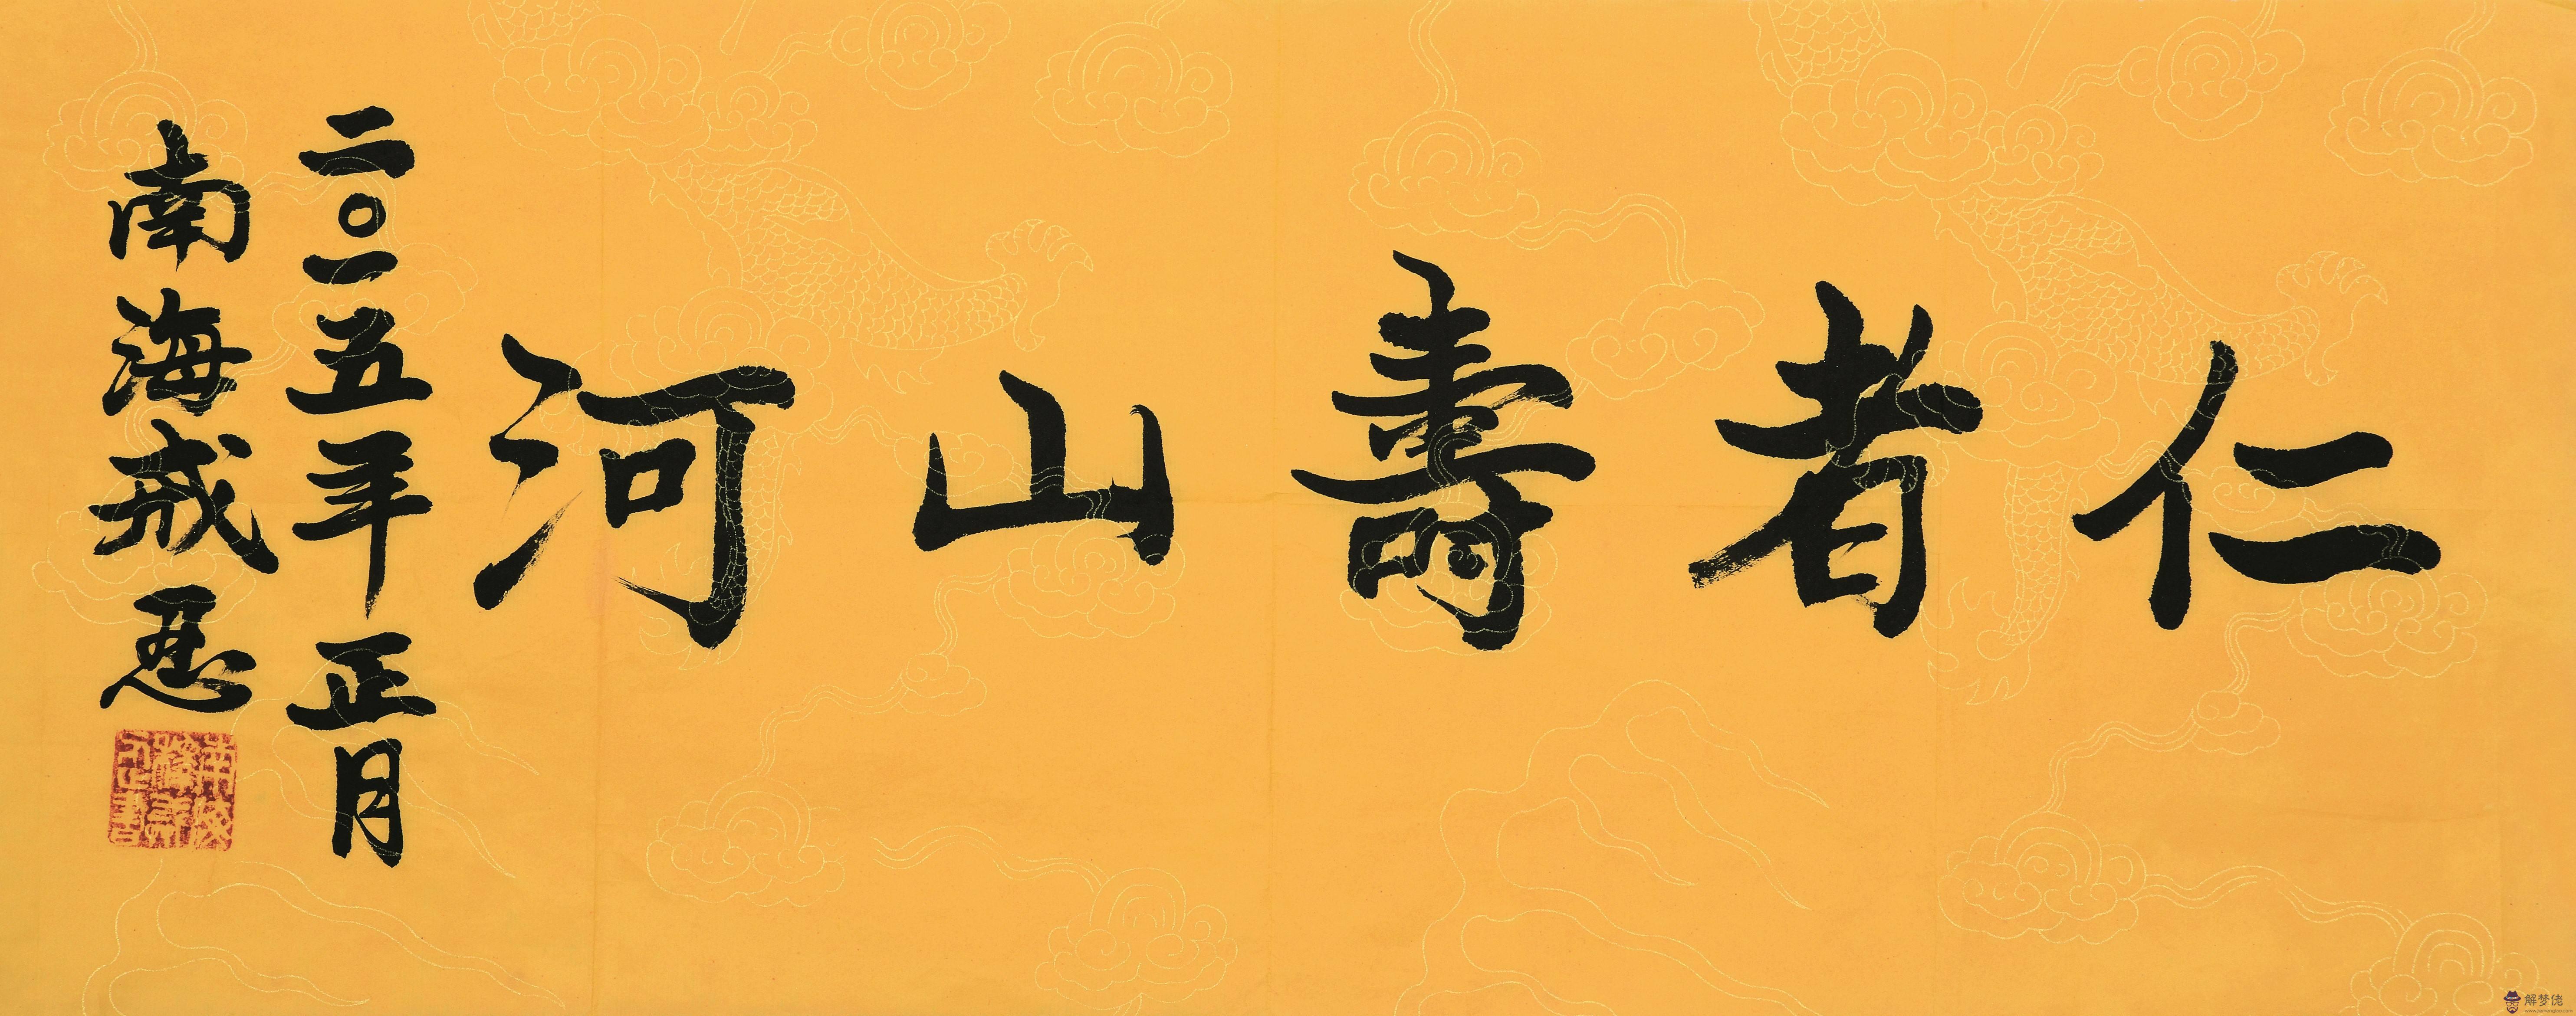 仁者壽山河
二〇一五年正月
南海戒忍
解梦佬